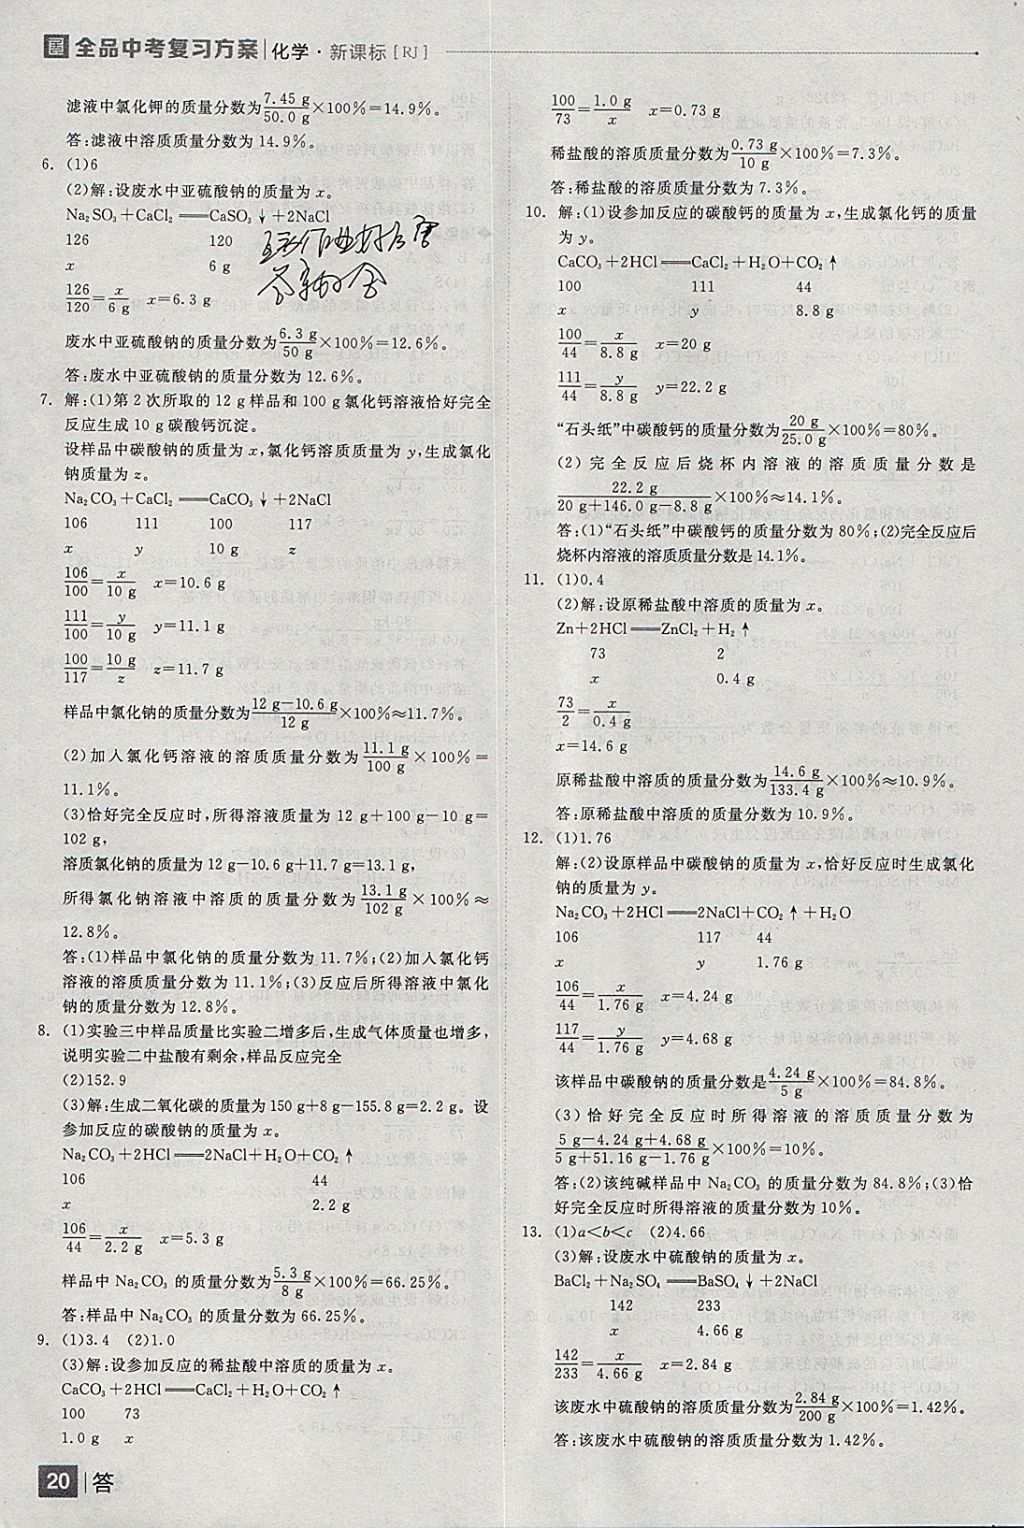 全品中考复习方案 化学·新课标[RJ]
滤液中氯化钾的质量分数为7.45 g/50.0 g×100%=14.9%。
答:滤液中溶质质量分数为14.9%。
6. (1)6
(2)解:设废水中亚硫酸钠的质量为x。
Na₂SO₃+CaCl₂══CaSO₃↓+2NaCl
126 120
x 6 g
126/120=x/6 g x=6.3 g
废水中亚硫酸钠的质量分数为6.3 g/50 g×100%=12.6%。
答:废水中亚硫酸钠的质量分数为12.6%。
7. 解:(1)第2次所取的12 g样品和100 g氯化钙溶液恰好完全
反应生成10 g碳酸钙沉淀。
设样品中碳酸钠的质量为x,氯化钙溶质质量为y,生成氯化
钠质量为z。
Na₂CO₃+CaCl₂══CaCO₃↓+2NaCl
106 111 100 117
x y 10 g z
106/100=x/10 g x=10.6 g
111/100=y/10 g y=11.1 g
100/117=10 g/z z=11.7 g
样品中氯化钠的质量分数为12 g-10.6 g/12 g×100%≈11.7%。
(2)加入氯化钙溶液的溶质质量分数为11.1 g/100 g×100%=
11.1%。
(3)恰好完全反应时,所得溶液质量为12 g+100 g-10 g=
102 g,
溶质氯化钠的质量为12 g-10.6 g+11.7 g=13.1 g,
所得氯化钠溶液中溶质的质量分数为13.1 g/102 g×100%≈
12.8%。
答:(1)样品中氯化钠的质量分数为11.7%;(2)加入氯化钙
溶液的溶质质量分数为11.1%;(3)反应后所得溶液中氯化
钠的质量分数为12.8%。
8. (1)实验三中样品质量比实验二增多后,生成气体质量也增多,
说明实验二中盐酸有剩余,样品反应完全
(2)152.9
(3)解:生成二氧化碳的质量为150 g+8 g-155.8 g=2.2 g。设
参加反应的碳酸钠的质量为x。
Na₂CO₃+2HCl══2NaCl+H₂O+CO₂↑
106 44
x 2.2 g
106/44=x/2.2 g x=5.3 g
样品中Na₂CO₃的质量分数为5.3 g/8 g×100%=66.25%。
答:样品中Na₂CO₃的质量分数为66.25%。
9. (1)3.4 (2)1.0
(3)解:设参加反应的稀盐酸中溶质的质量为x。
CaCO₃+2HCl══CaCl₂+H₂O+CO₂↑
100 73
1.0 g x
100/73=1.0 g/x x=0.73 g
稀盐酸的溶质质量分数为0.73 g/10 g×100%=7.3%。
答:稀盐酸的溶质质量分数为7.3%。
10. 解:(1)设参加反应的碳酸钙的质量为x,生成氯化钙的质量
为y。
CaCO₃+2HCl══CaCl₂+H₂O+CO₂↑
100 111 44
x y 8.8 g
100/44=x/8.8 g x=20 g
111/44=y/8.8 g y=22.2 g
“石头纸”中碳酸钙的质量分数为20 g/25.0 g×100%=80%。
(2)完全反应后烧杯内溶液的溶质质量分数是
22.2 g/20 g+146.0 g-8.8 g×100%≈14.1%。
答:(1)“石头纸”中碳酸钙的质量分数为80%;(2)完全反应后
烧杯内溶液的溶质质量分数是14.1%。
11. (1)0.4
(2)解:设原稀盐酸中溶质的质量为x。
Zn+2HCl══ZnCl₂+H₂↑
73 2
x 0.4 g
73/2=x/0.4 g
x=14.6 g
原稀盐酸中溶质的质量分数为14.6 g/133.4 g×100%≈10.9%。
答:原稀盐酸中溶质的质量分数为10.9%。
12. (1)1.76
解:(2)设原样品中碳酸钠的质量为x,恰好反应时生成氯化
钠的质量为y。
Na₂CO₃+2HCl══2NaCl+CO₂↑+H₂O
106 117 44
x y 1.76 g
106/44=x/1.76 g x=4.24 g
117/44=y/1.76 g y=4.68 g
该样品中碳酸钠的质量分数是4.24 g/5 g×100%=84.8%。
(3)恰好完全反应时所得溶液的溶质质量分数为
5 g-4.24 g+4.68 g/5 g+51.16 g-1.76 g×100%=10%。
答:(2)该纯碱样品中Na₂CO₃的质量分数为84.8%;(3)恰
好完全反应时所得溶液的质量分数为10%。
13. (1)a<b<c (2)4.66
(3)解:设废水中硫酸钠的质量为x。
BaCl₂+Na₂SO₄══BaSO₄↓+2NaCl
142 233
x 4.66 g
142/233=x/4.66 g x=2.84 g
该废水中硫酸钠的溶质质量分数为2.84 g/200 g×100%=1.42%。
答:该废水中硫酸钠的溶质质量分数为1.42%。
20 答